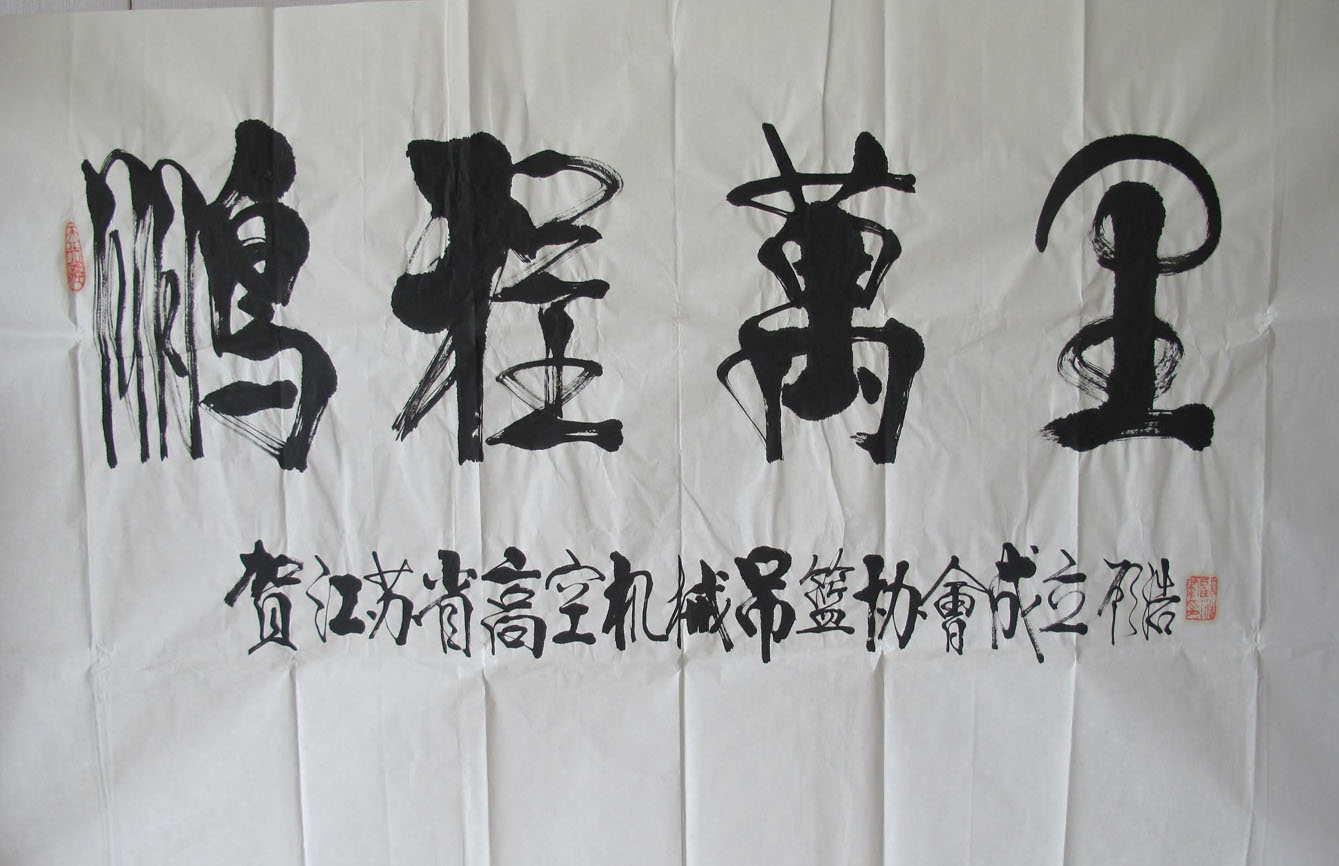 鹏程萬里
贺江苏省高空机械吊篮协會成立